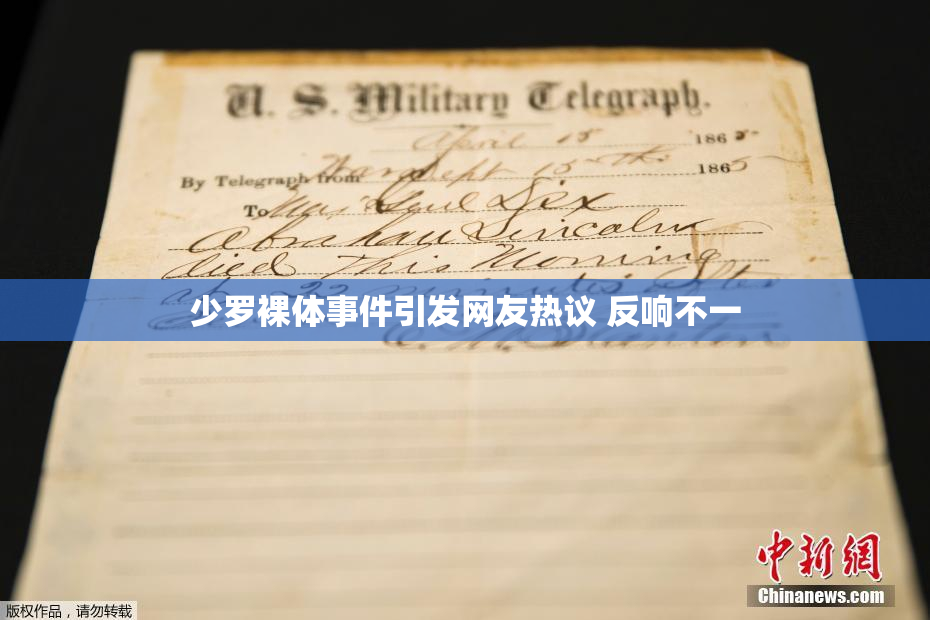 U. S. Military Telegraph.
April 15 1865
By Telegraph from War Dept 15th 1865
To Maj Genl Dix
Abraham Lincoln
died this Morning
at 22 minutes after
少罗裸体事件引发网友热议 反响不一
E. M. Stanton
中新网
Chinanews.com
版权作品，请勿转载